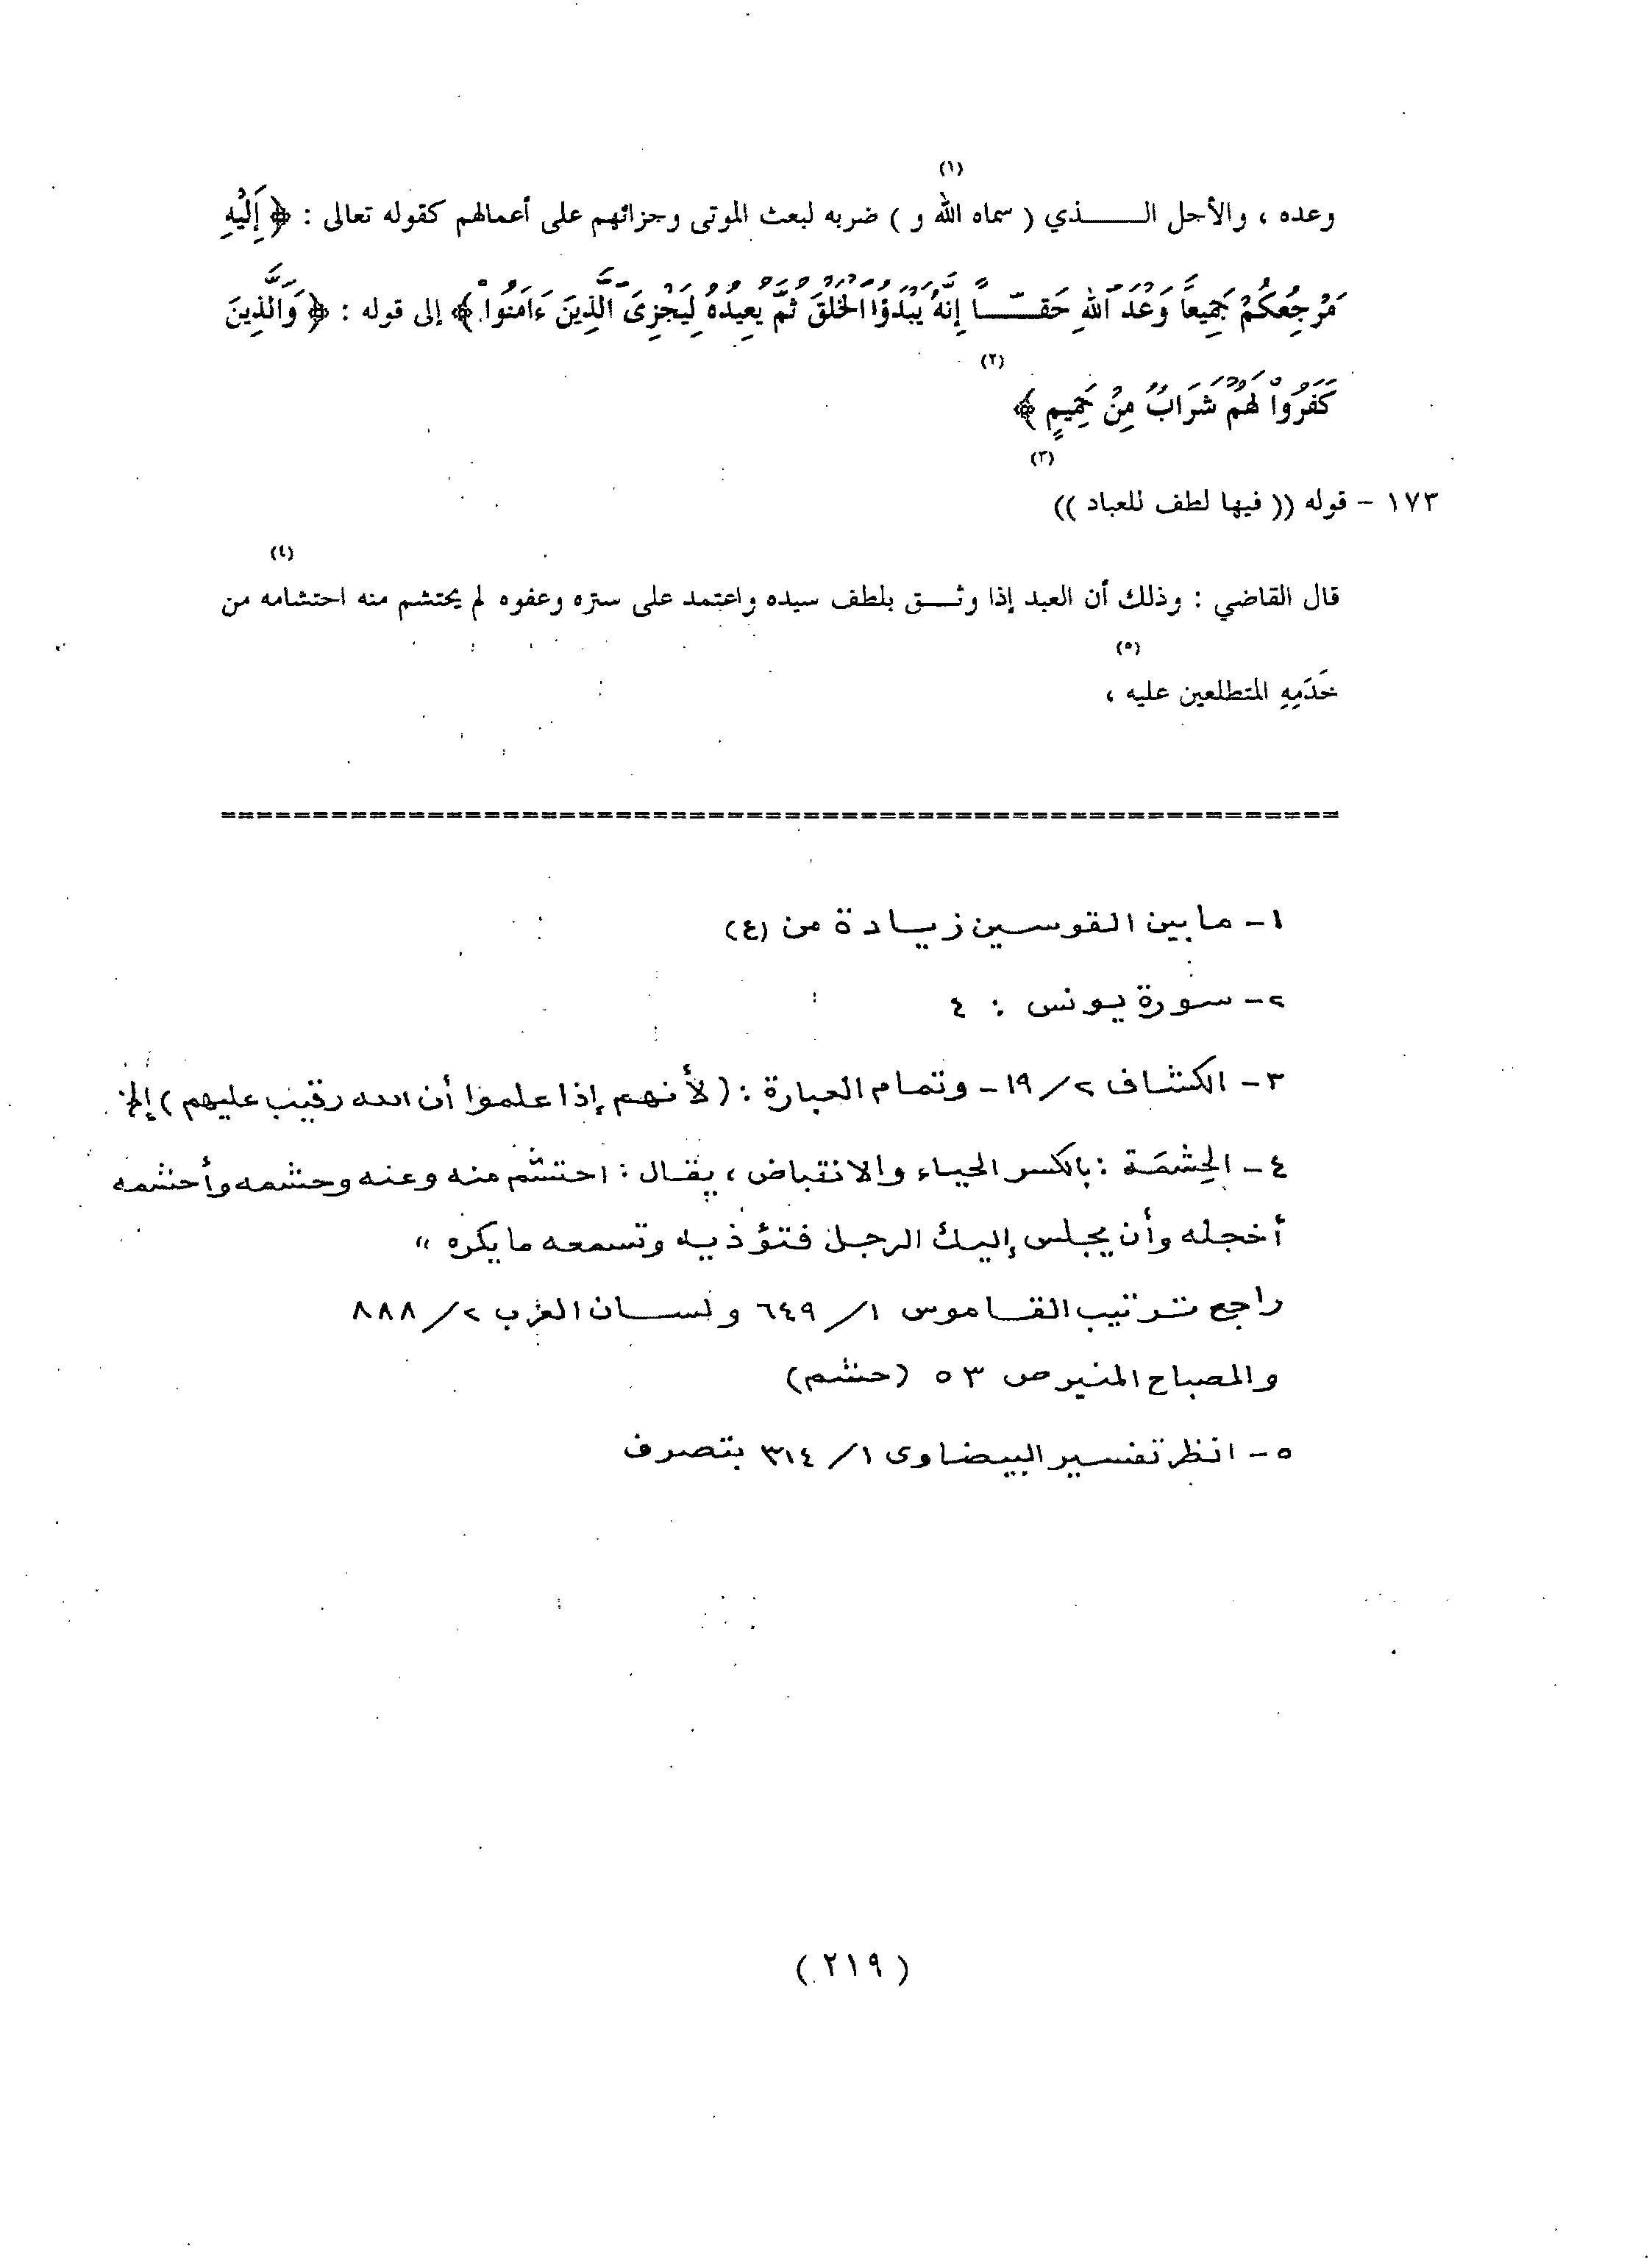 (١)
وعده ، والأجل الـــــذي ( سماه الله و ) ضربه لبعث الموتى وجزائهم على أعمالهم كقوله تعالى : ﴿ إِلَيْهِ
مَرْجِعُكُمْ جَمِيعًا وَعْدَ اللَّهِ حَقــــًّا إِنَّهُ يَبْدَؤُا الْخَلْقَ ثُمَّ يُعِيدُهُ لِيَجْزِىَ الَّذِينَ ءَامَنُوا ﴾ إلى قوله : ﴿ وَالَّذِينَ
(٢)
كَفَرُوا لَهُمْ شَرَابٌ مِنْ حَمِيمٍ ﴾
(٣)
١٧٣ – قوله (( فيها لطف للعباد ))
(٤)
قال القاضي : وذلك أن العبد إذا وثـــق بلطف سيده واعتمد على ستره وعفوه لم يحتشم منه احتشامه من
(٥)
خَدَمِهِ المتطلعين عليه ،
١- ما بين القوسين زيادة من (ع)
٢- سورة يونس : ٤
٣- الكشاف ٢/ ١٩ - وتمام العبارة : (لأنهم إذا علموا أن الله رقيب عليهم) إلخ
٤- الحِشمَة : بالكسر الحياء والانقباض ، يقال : احتشم منه وعنه وحشمه وأحشمه
أخجله وأن يجلس إليك الرجل فتؤذيه وتسمعه ما يكره "
راجع ترتيب القاموس ١/ ٦٤٩ ولسان العرب ٢/ ٨٨٨
والمصباح المنير ص ٥٣ (حشم)
٥- انظر تفسير البيضاوى ١/ ٣١٤ بتصرف
( ٢١٩ )